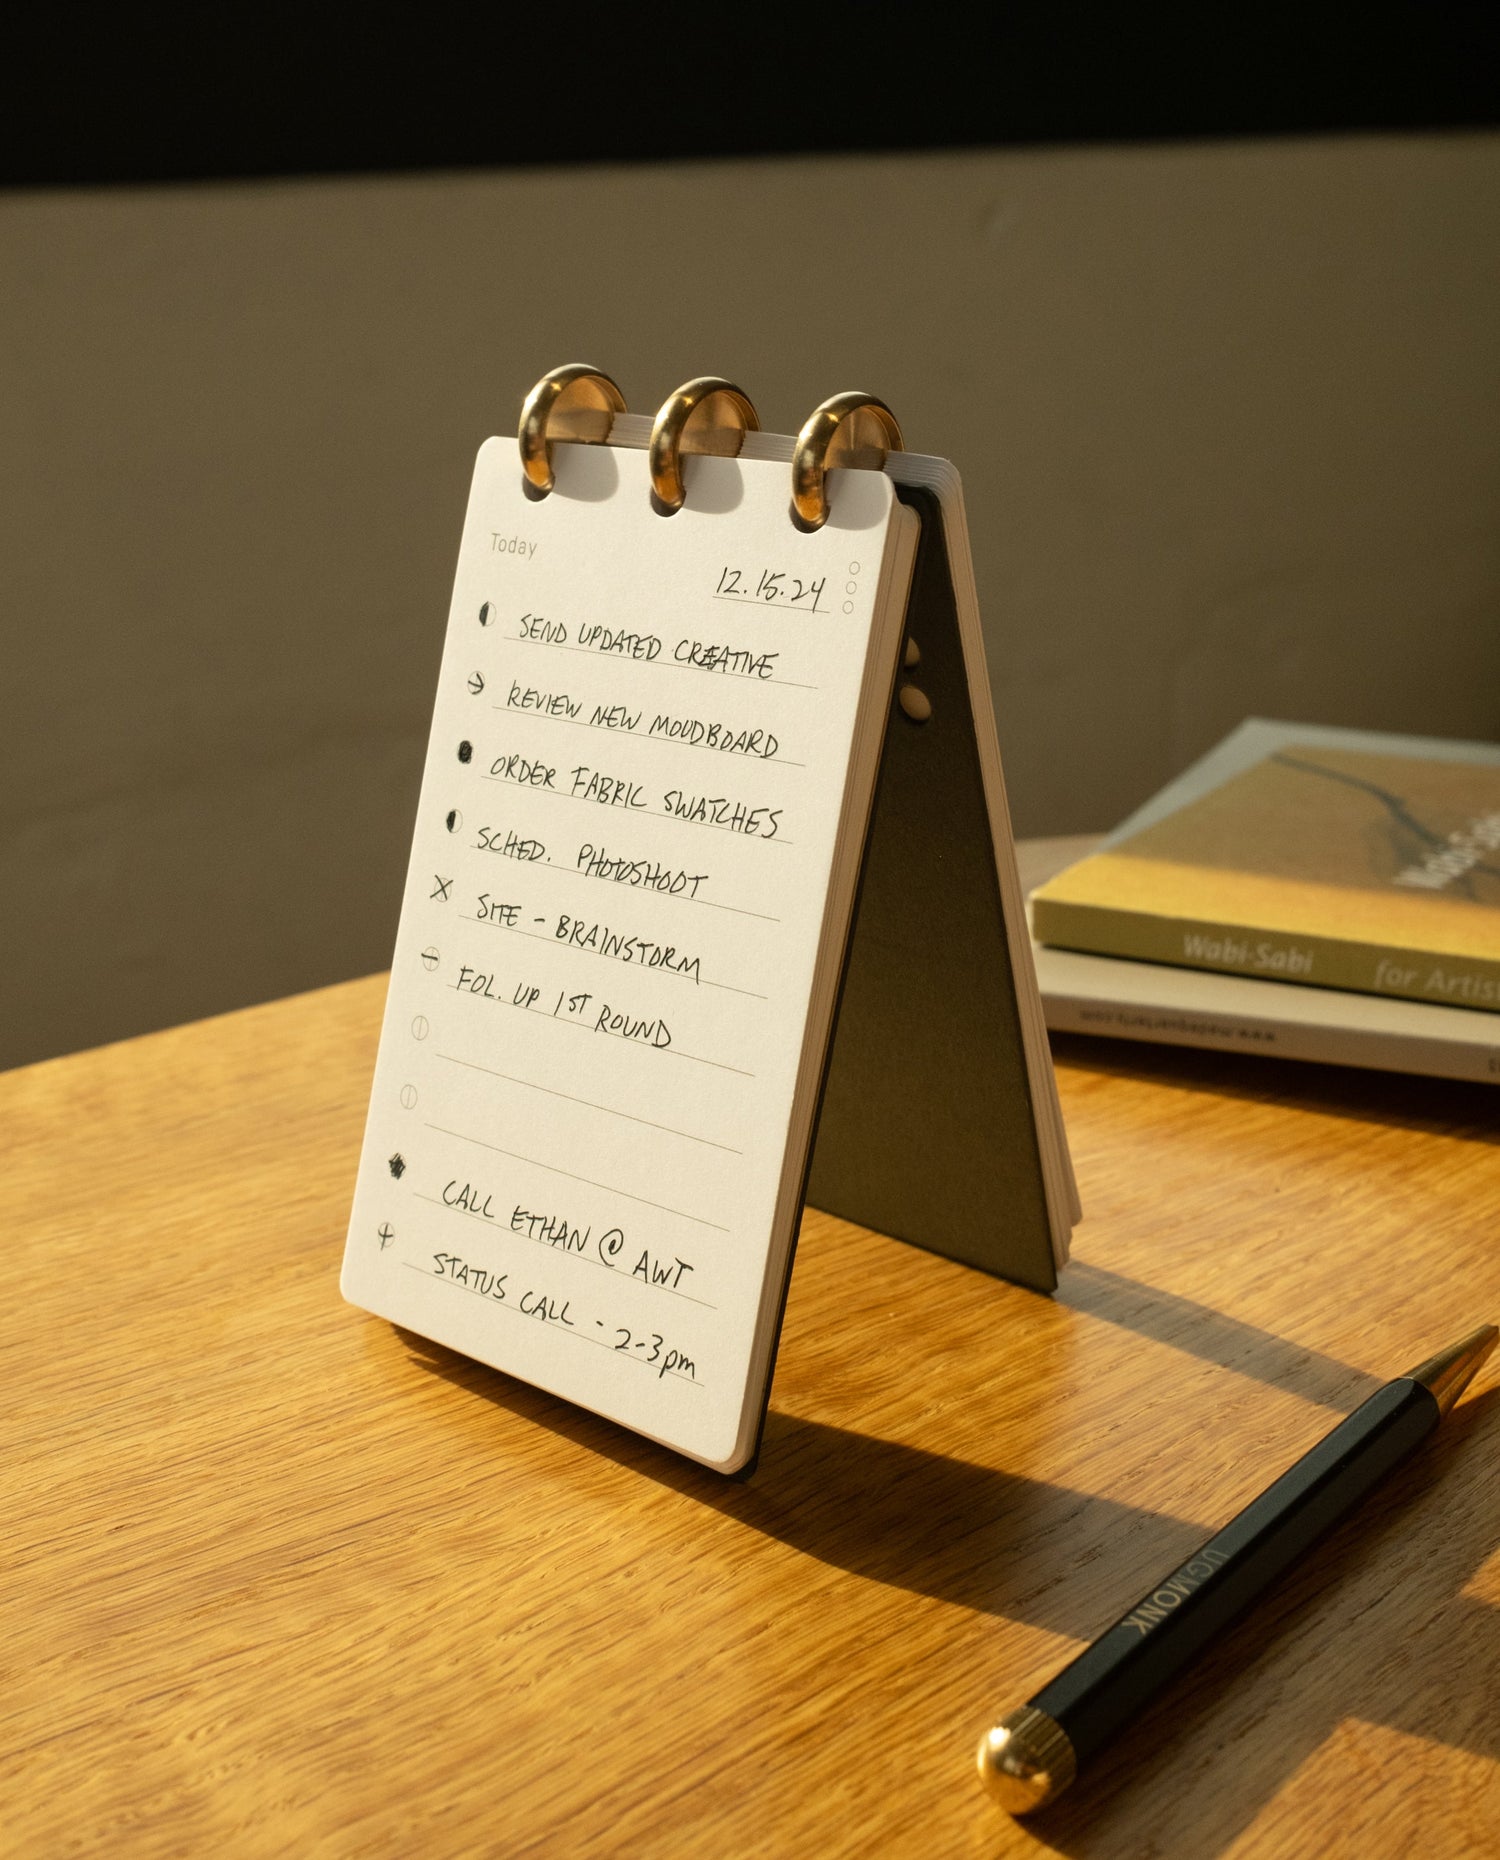 Today
12.15.24
SEND UPDATED CREATIVE
REVIEW NEW MOODBOARD
ORDER FABRIC SWATCHES
SCHED. PHOTOSHOOT
SITE - BRAINSTORM
FOL. UP 1ST ROUND
CALL ETHAN @ AWT
STATUS CALL - 2-3pm
Wabi-Sabi
Wabi-Sabi for Artis
UGMONK